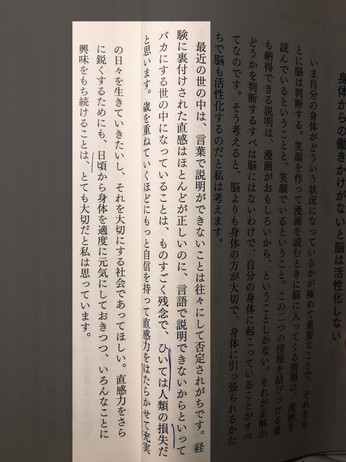 身体からの働きかけがないと脳は活性化しない
いま自分の身体がどういう状況になっているかが極めて重要なことで、それをも
とに脳は判断する。笑顔を作って漫画を読むときに脳に入ってくる情報は、漫画を
読んでいるということと、笑顔でいるということ。この二つの情報を結びつける最
も納得できる説明は、漫画がおもしろいから、ということしかない。それが正解か
どうかを判断するすべは脳にはないわけで、自分の身体に起こっていることがすべ
てなのです。そう考えると、脳よりも身体の方が大切で、身体に引っ張られるかた
ちで脳も活性化するのだと私は考えます。
最近の世の中は、言葉で説明ができないことは往々にして否定されがちです。経
験に裏付けされた直感はほとんどが正しいのに、言語で説明できないからといって
バカにする世の中になっていることは、ものすごく残念で、ひいては人類の損失だ
と思います。歳を重ねていくほどにもっと自信を持って直感力をはたらかせて充実
の日々を生きていきたいし、それを大切にする社会であってほしい。直感力をさら
に鋭くするためにも、日頃から身体を適度に元気にしておきつつ、いろんなことに
興味をもち続けることは、とても大切だと私は思っています。